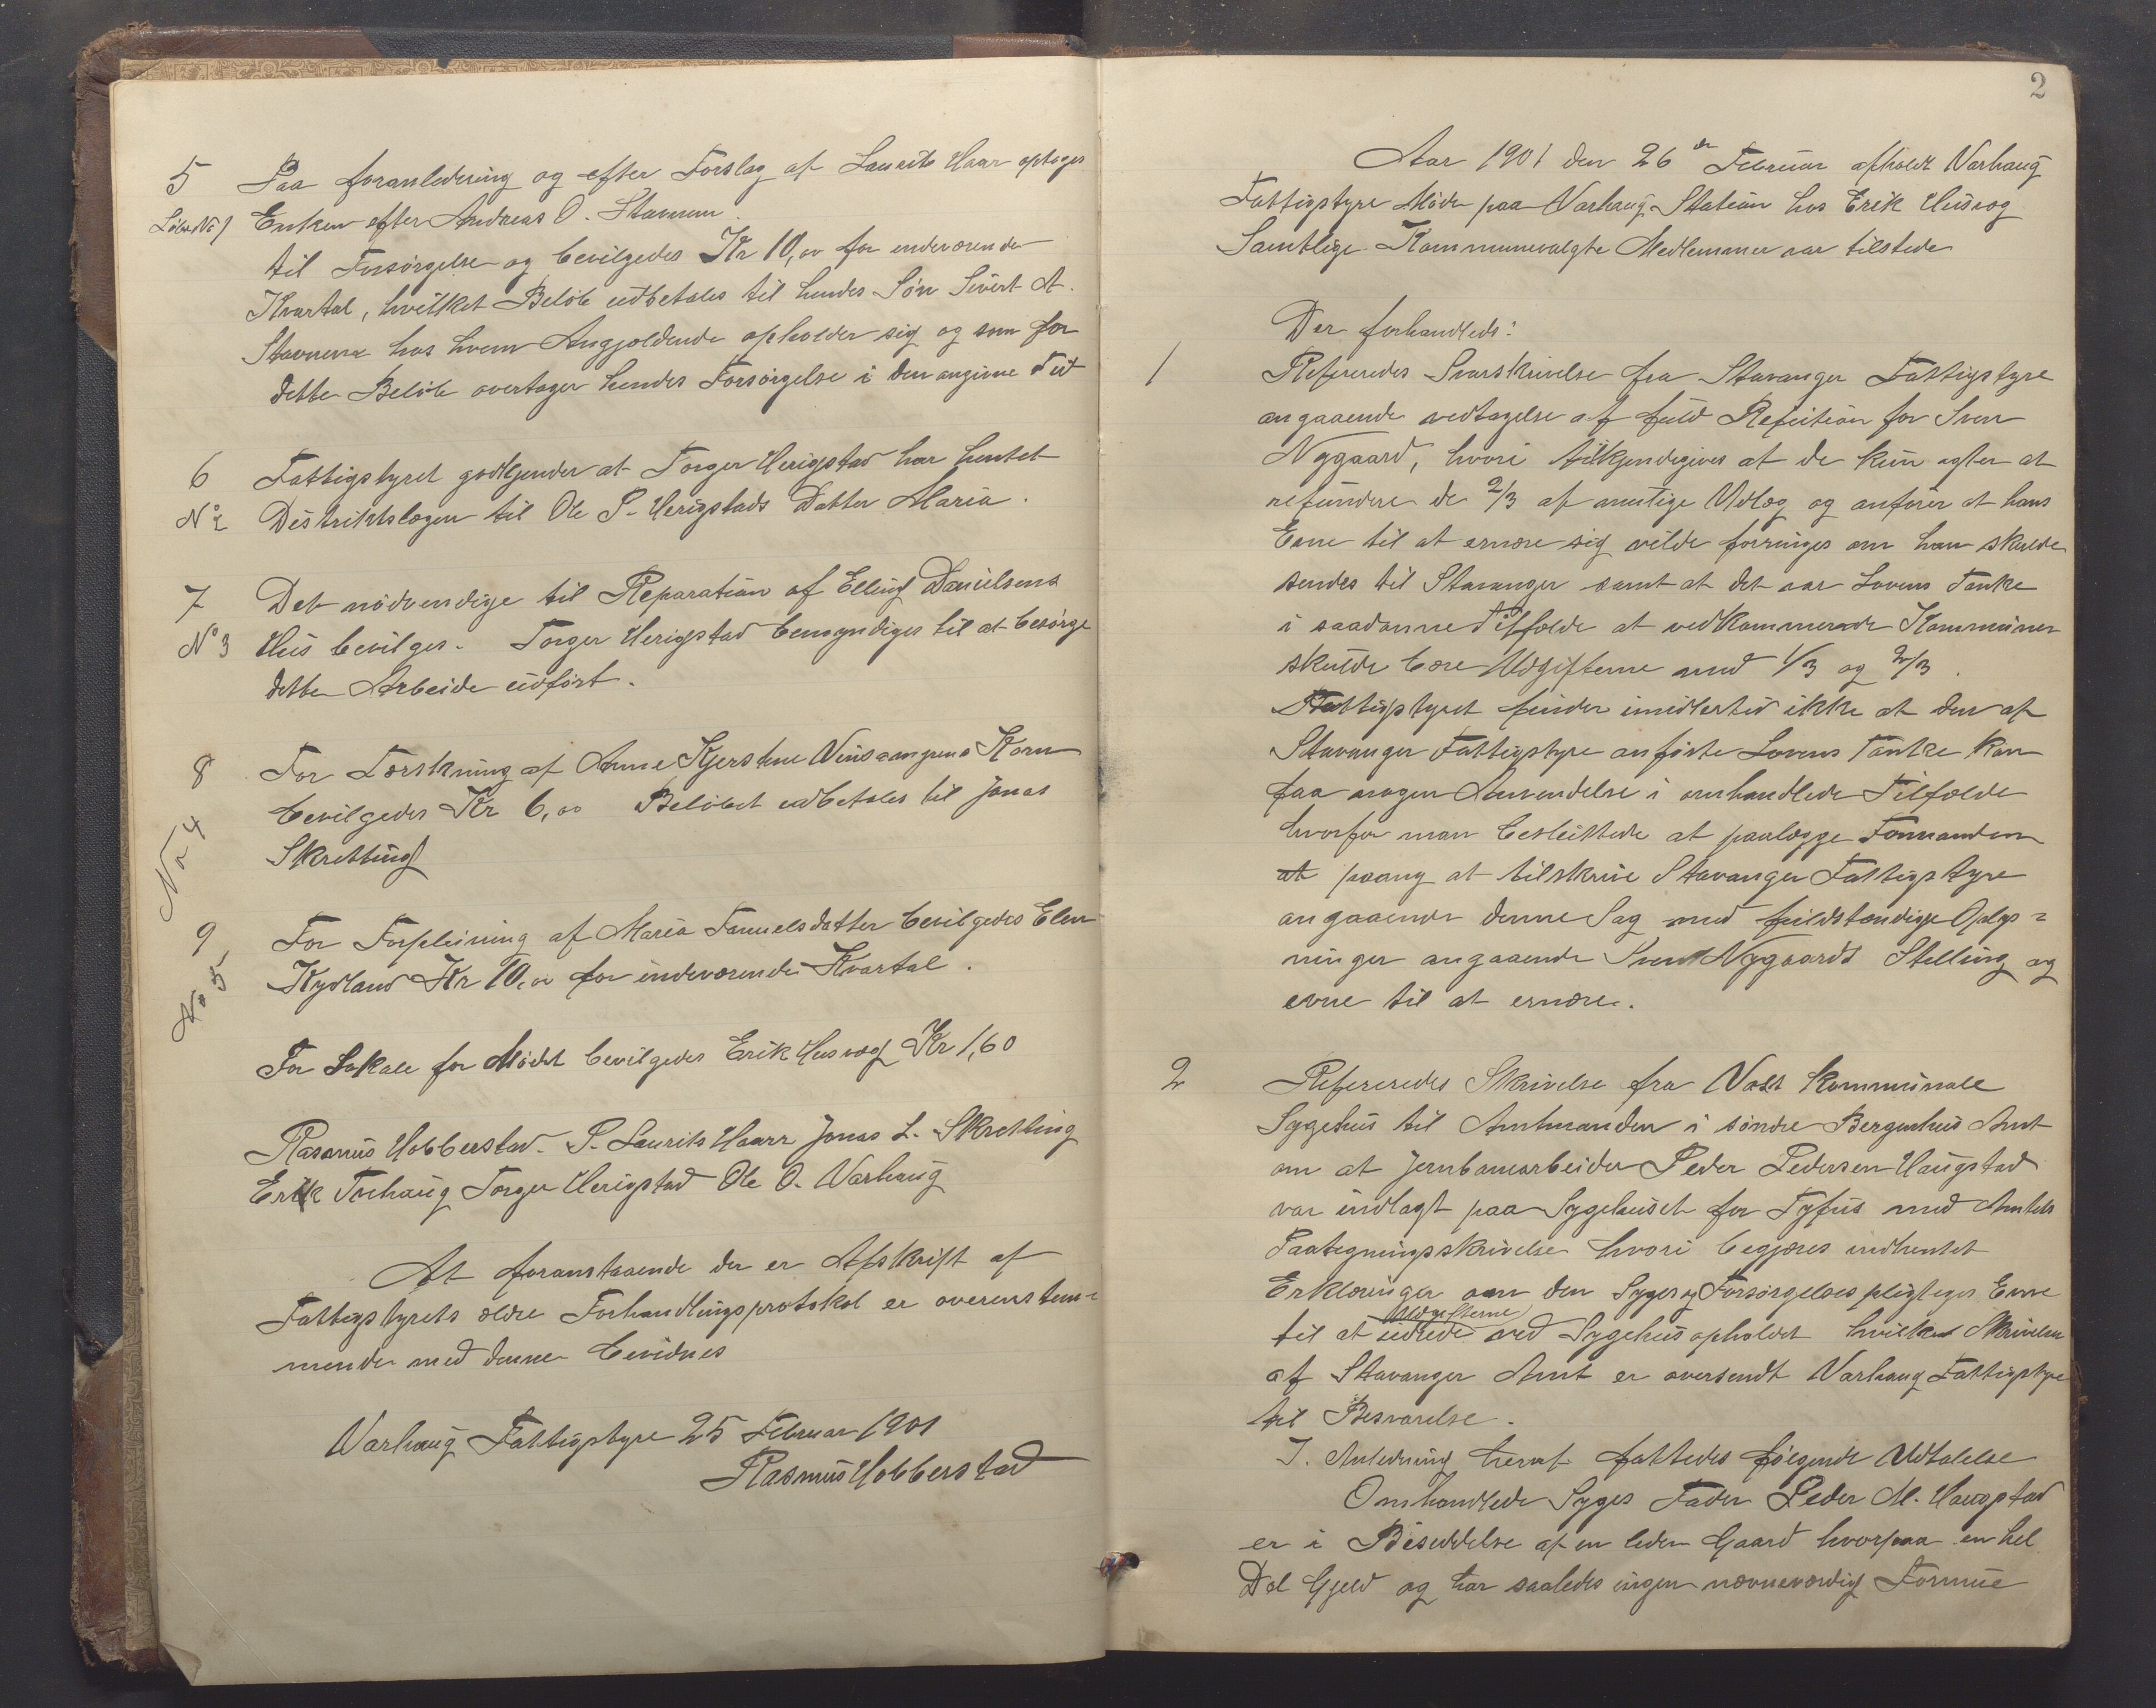 5 Paa foranledning og efter Forslag af Laurits Haar optages
Löbe No 1 Enken efter Andreas O. Stavnem
til Forsörgelse og bevilgedes Kr 10,00 for indeværende
Kvartal, hvilket Belöb udbetales til hendes Sön Sivert A.
Stavnem hos hvem Angjeldende opholder sig og som for
dette Belöb overtager hendes Forsörgelse i den angivne Tid
6 Fattigstyret godkjender at Torger Herigstad har hentet
No 2 Distriktslægen til Ole P. Herigstads Datter Maria.
7 Det nödvendige til Reparation af Elling Danielsens
No 3 Hus bevilges. Torger Herigstad bemyndiges til at besörge
dette Arbeide udfört.
8 For Torskning af Anne Kjerstine Korn
No 4 bevilgedes Kr 6,00 Belöbet udbetales til Jonas
Skretting
9 For Forpleining af Maria Samuelsdatter bevilgedes Elen
No 5 Kydland Kr 10,00 for indeværende Kvartal.
For Lokale for Mödet bevilgedes Erik Husvæg Kr 1,60
Rasmus Hobberstad. P. Laurits Haarr Jonas L. Skretting
Erik Torhaug Torger Herigstad Ole O. Varhaug
At foranstaaende der er Afskrift af
Fattigstyrets ældre Forhandlingsprotokol er overenstem-
mende med denne bevidnes
Varhaug Fattigstyre 25 Februar 1901
Rasmus Hobberstad
2
Aar 1901 den 26de Februar afholdt Varhaug
Fattigstyre Möde paa Varhaug Station hos Erik Husvæg
Samtlige Kommunevalgte Medlemmer var tilstede
Der forhandledes:
1 Refereredes Svarskrivelse fra Stavanger Fattigstyre
angaaende vedtagelse af fuld Refution for Sven
Nygaard, hvori tilkjendegives at de kun agter at
refundere de 2/3 af Udlæg og anförer at hans
Evne til at ernære sig vilde forringes om han skulde
sendes til Stavanger samt at det var Lovens Tanke
i saadanne Tilfælde at vedkommende Kommuner
skulde bære Udgifterne med 1/3 og 2/3.
Fattigstyret finder imidlertid ikke at den af
Stavanger Fattigstyre anförte Lovens Tanke kan
faa nogen Anvendelse i omhandlede Tilfælde
hvorfor man besluttede at paalægge Formanden
at paany at tilskrive Stavanger Fattigstyre
angaaende denne Sag med fuldstændige Oplys=
ninger angaaende Sven Nygaards Stelling og
evne til at ernære.
2 Refereredes Skrivelse fra Voss Kommunale
Sygehus til Amtmanden i söndre Bergenhus Amt
om at Jernbanearbeider Peder Pedersen Haugstad
var indlagt paa Sygehuset for Tyfus med Amtets
Paategningsskrivelse hvori begjæres indhentet
Erklæringer om den Syges og Forsörgelsespligtiges Evne
Udgifterne
til at udrede ved Sygehusopholdet hvilken Skrivelse
af Stavanger Amt er oversendt Varhaug Fattigstyre
til Besvarelse.
I. Anledning heraf fattedes fölgende Udtalelse
Omhandlede Syges Fader Peder M. Haugstad
er i Besiddelse af en liden Gaard hvorpaa en hel
Del Gjeld og har saaledes ingen nævneværdig Formue